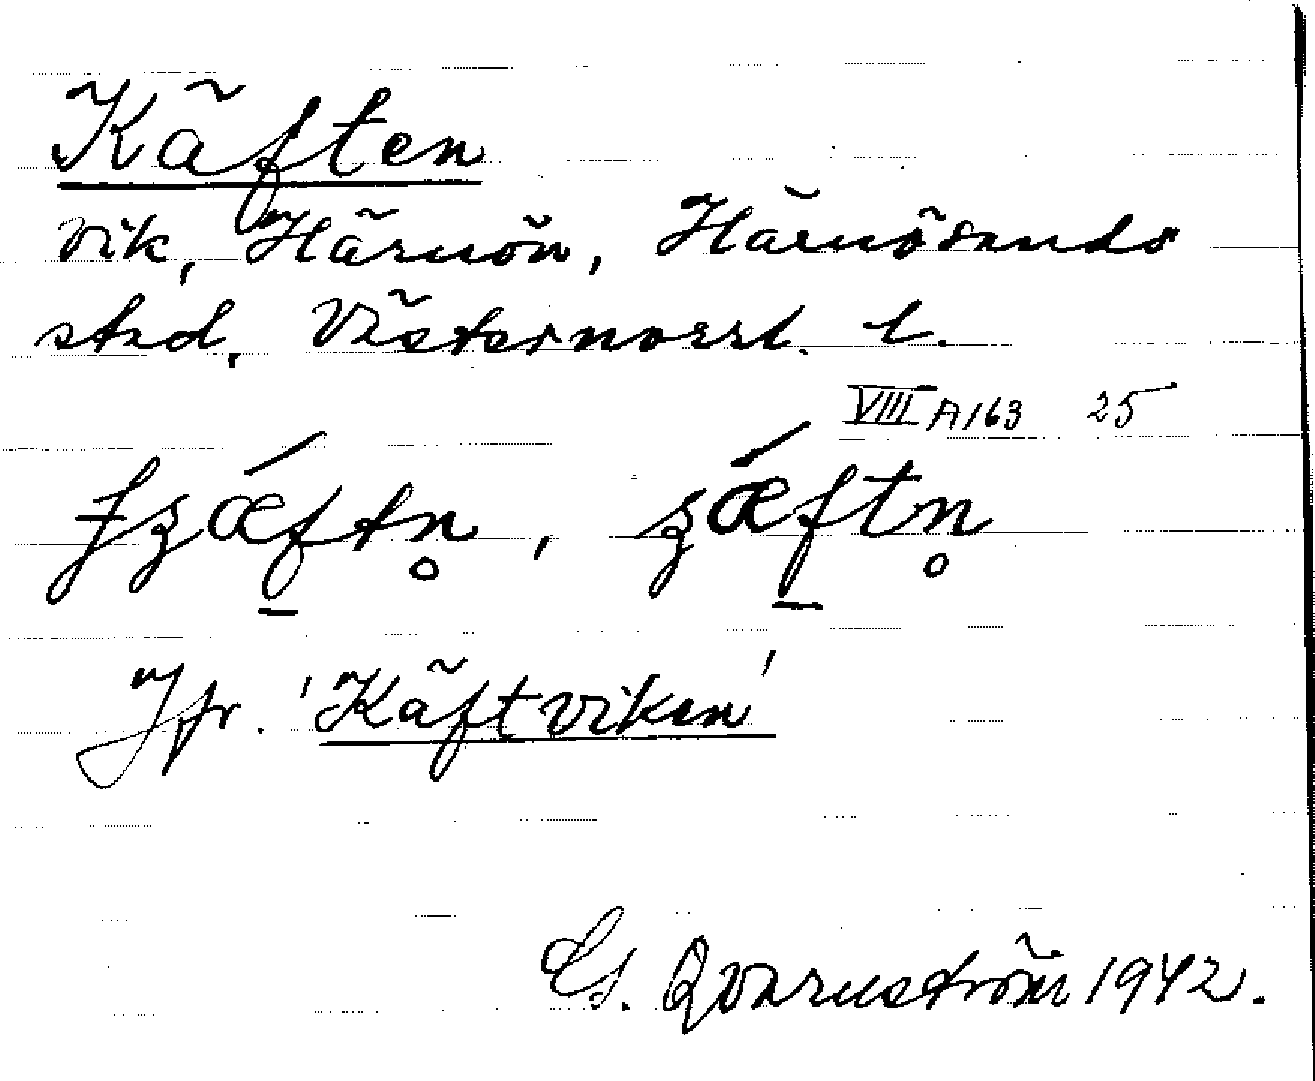 Käften
vik, Härnön, Härnösands
stad, Västernorrl. l.
VIII A163 25
Jfr. 'Käftviken'
Qvarnström 1942.